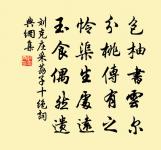 包柚書雲尔
分桃傳有之
怜渠生處遠
玉食偶然遺
刘克庄采荔子十绝詞
典網集